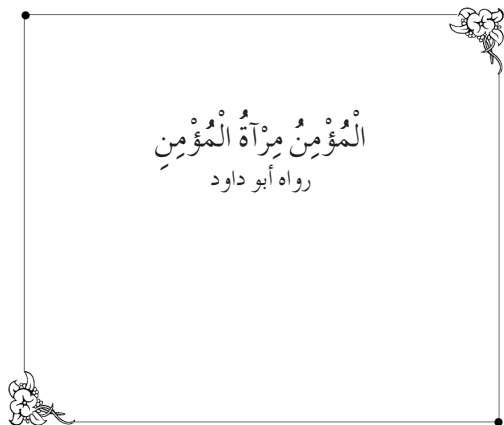 الْمُؤْمِنُ مِرْآةُ الْمُؤْمِنِ
رواه أبو داود